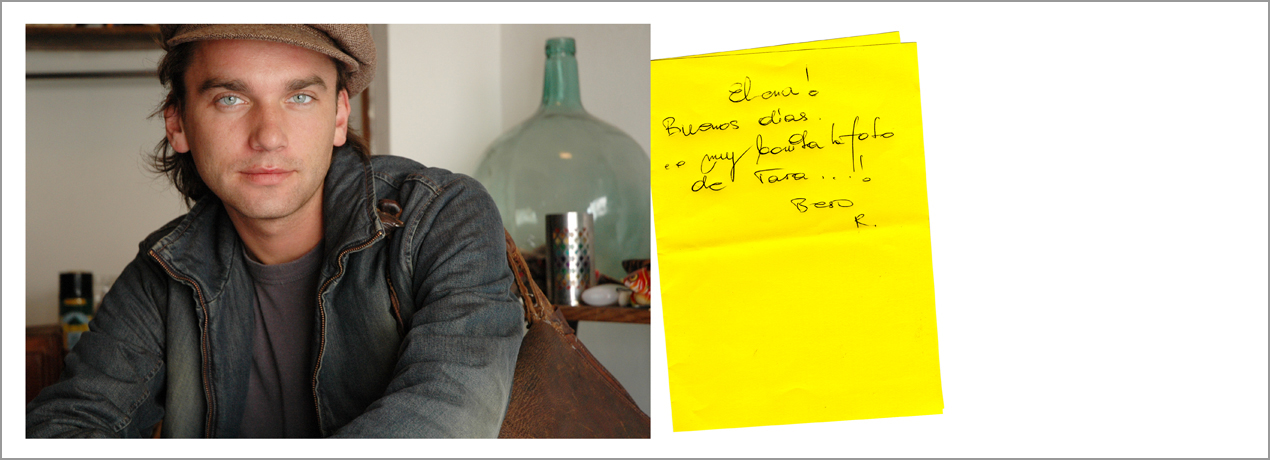 Elena!
Buenos días.
.. muy bonita la foto
de Tara ...!
Beso
R.